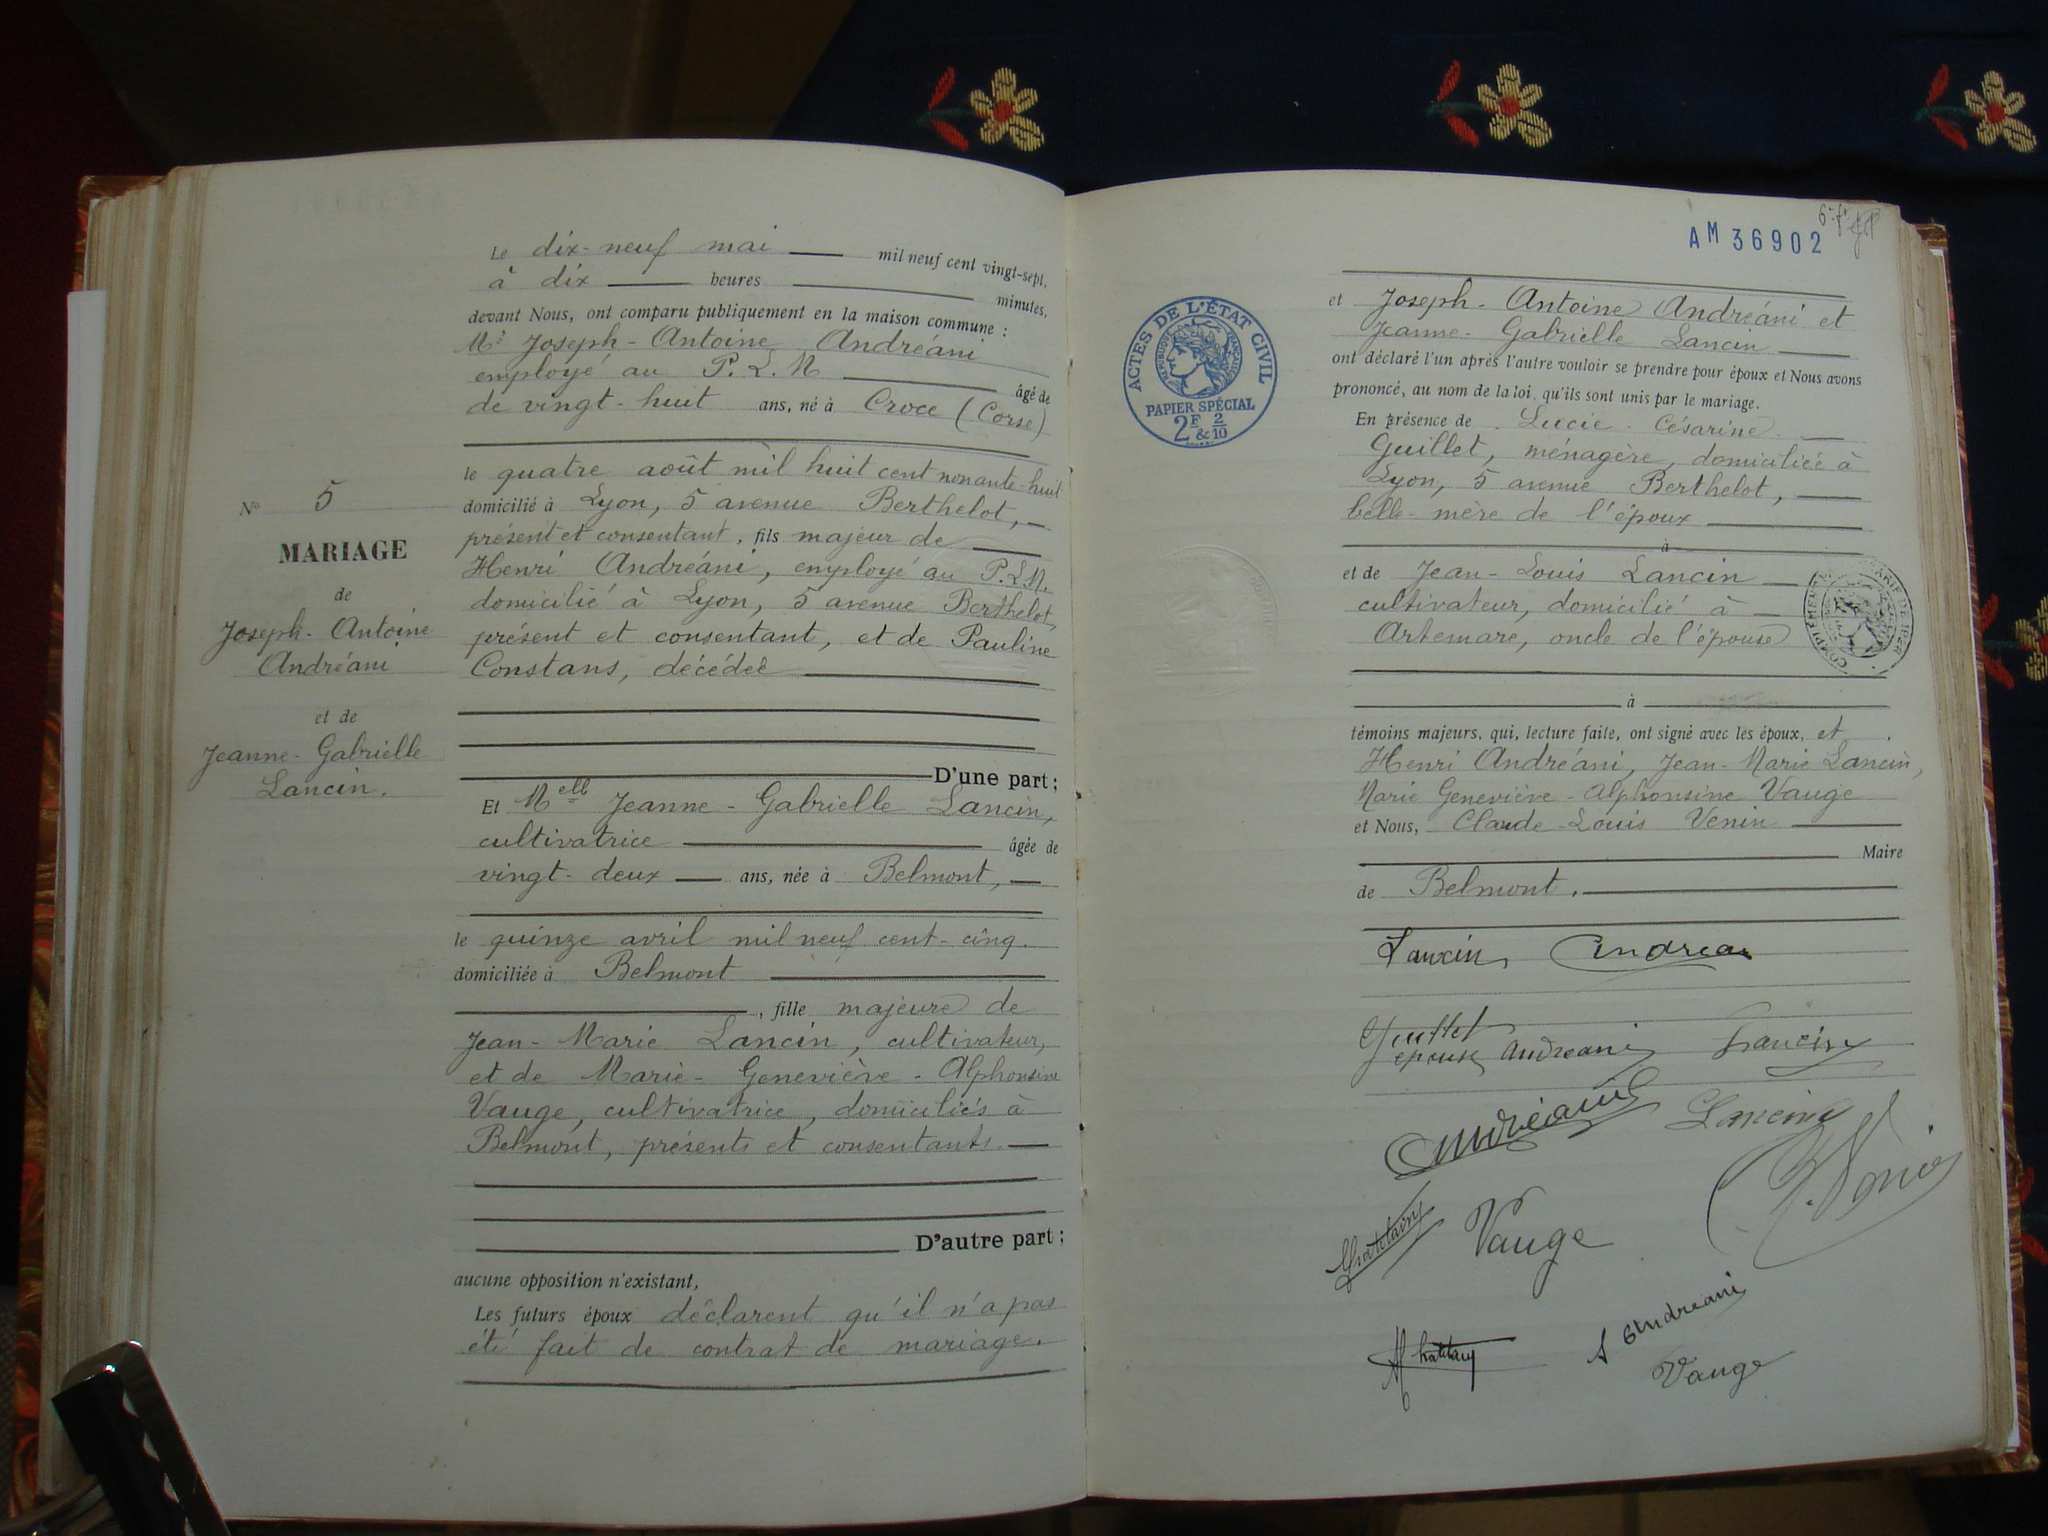 Le dix-neuf mai mil neuf cent vingt-sept,
à dix heures minutes,
devant Nous, ont comparu publiquement en la maison commune :
Mr Joseph-Antoine Andréani
employé au P.L.M âgé de
de vingt-huit ans, né à Croce (Corse)
le quatre août mil huit cent nonante-huit
domicilié à Lyon, 5 avenue Berthelot,
présent et consentant, fils majeur de
Henri Andréani, employé au P.L.M.
domicilié à Lyon, 5 avenue Berthelot,
présent et consentant, et de Pauline
Constans, décédée
D'une part ;
Et Melle Jeanne-Gabrielle Lancin,
cultivatrice âgée de
vingt-deux ans, née à Belmont,
le quinze avril mil neuf cent-cinq
domiciliée à Belmont
, fille majeure de
Jean-Marie Lancin, cultivateur,
et de Marie-Geneviève-Alphonsine
Vauge, cultivatrice, domiciliés à
Belmont, présents et consentants.
D'autre part ;
aucune opposition n'existant,
Les futurs époux déclarent qu'il n'a pas
été fait de contrat de mariage.
No 5
MARIAGE
de
Joseph-Antoine
Andréani
et de
Jeanne-Gabrielle
Lancin.
AM 36902
ACTES DE L'ÉTAT CIVIL
RÉPUBLIQUE FRANÇAISE
PAPIER SPÉCIAL
2F & 2/10
et Joseph-Antoine Andréani et
Jeanne-Gabrielle Lancin
ont déclaré l'un après l'autre vouloir se prendre pour époux et Nous avons
prononcé, au nom de la loi, qu'ils sont unis par le mariage.
En présence de Lucie Césarine
Guillet, ménagère, domiciliée à
Lyon, 5 avenue Berthelot,
belle-mère de l'époux
à
et de Jean-Louis Lancin
cultivateur, domicilié à
Artemare, oncle de l'épouse
à
témoins majeurs, qui, lecture faite, ont signé avec les époux, et
Henri Andréani, Jean-Marie Lancin,
Marie Geneviève-Alphonsine Vauge
et Nous, Claude-Louis Venin
Maire
de Belmont.
Lancin Andréani
Guillet
épouse Andreani Lancin
Andréani Lancin
Chatelain Vauge
Andreani
Vauge